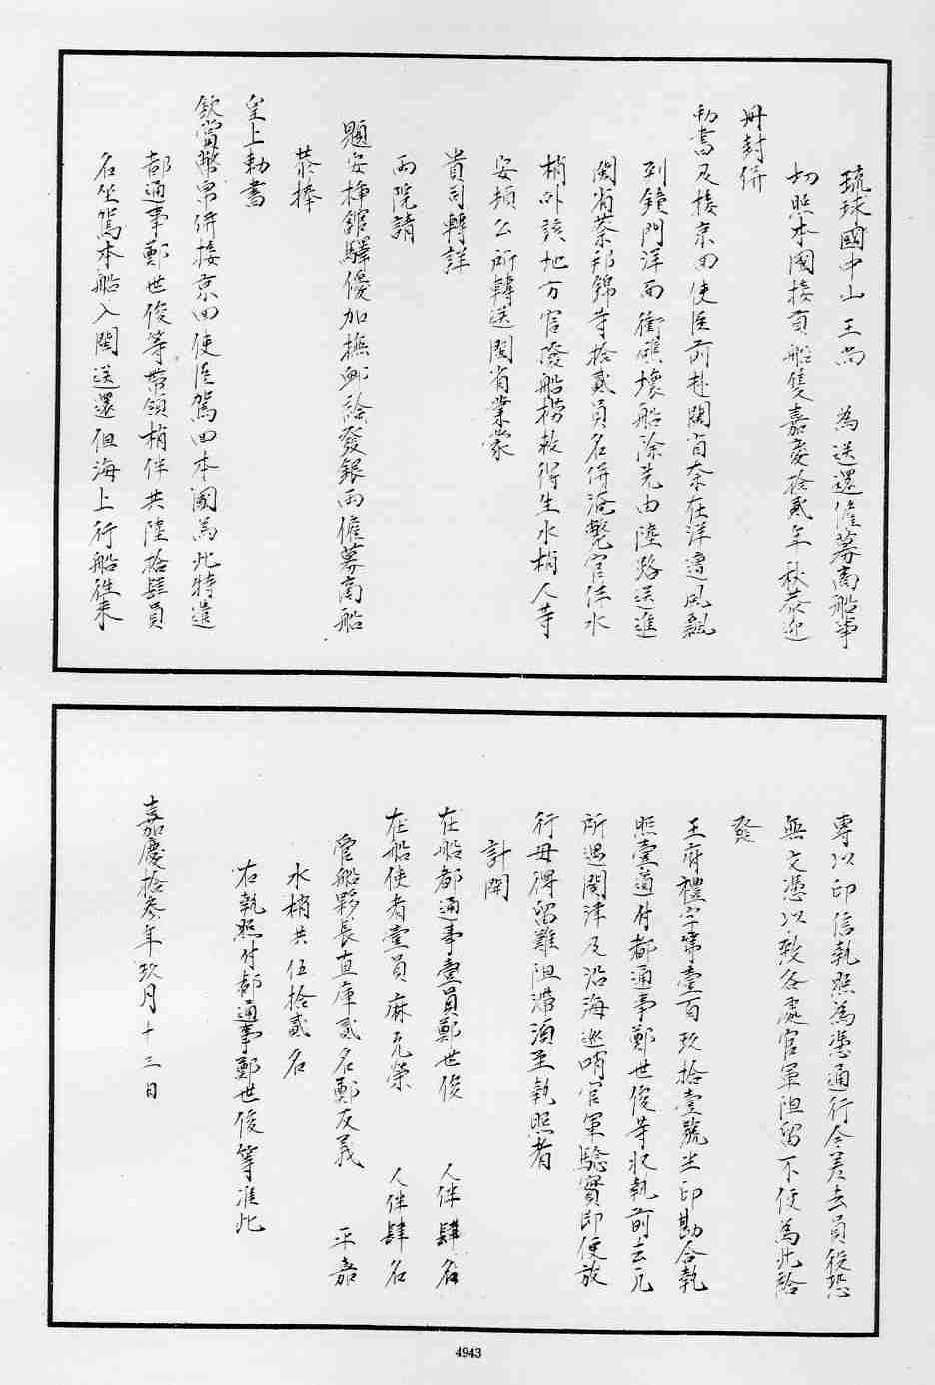 琉球國中山王尚　為送還僱募商船事
切照本國接貢船隻嘉慶拾貳年秋恭迎
冊封併
勅書及接京回使臣前赴閩省奈在洋遭風飄
到鐘門洋面衝礁壞船除先由陸路送進
閩省蔡邦錦等拾貳員名併淹斃官伴水
梢外該地方官撥船撈救得生水梢人等
安頓公所轉送閩省業蒙
貴司轉詳
兩院請
題安插館驛優加撫卹給發銀兩僱募商船
恭捧
皇上勅書
欽賞幣帛併接京回使臣駕回本國為此特遣
都通事鄭世俊等帶領梢伴共陸拾肆員
名坐駕本船入閩送還但海上行船往來
專以印信執照為憑通行今差去員役恐
無文憑以致各處官軍阻留不便為此給
發
王府禮字第壹百玖拾壹號半印勘合執
照壹道付都通事鄭世俊等收執前去凡
所遇關津及沿海巡哨官軍驗實即便放
行毋得留難阻滯須至執照者
計開
在船都通事壹員鄭世俊　人伴肆名
在船使者壹員麻克榮　人伴肆名
管船夥長直庫貳名鄭友義　平嘉
水梢共伍拾貳名
右執照付都通事鄭世俊等准此
嘉慶拾參年玖月十三日
4943